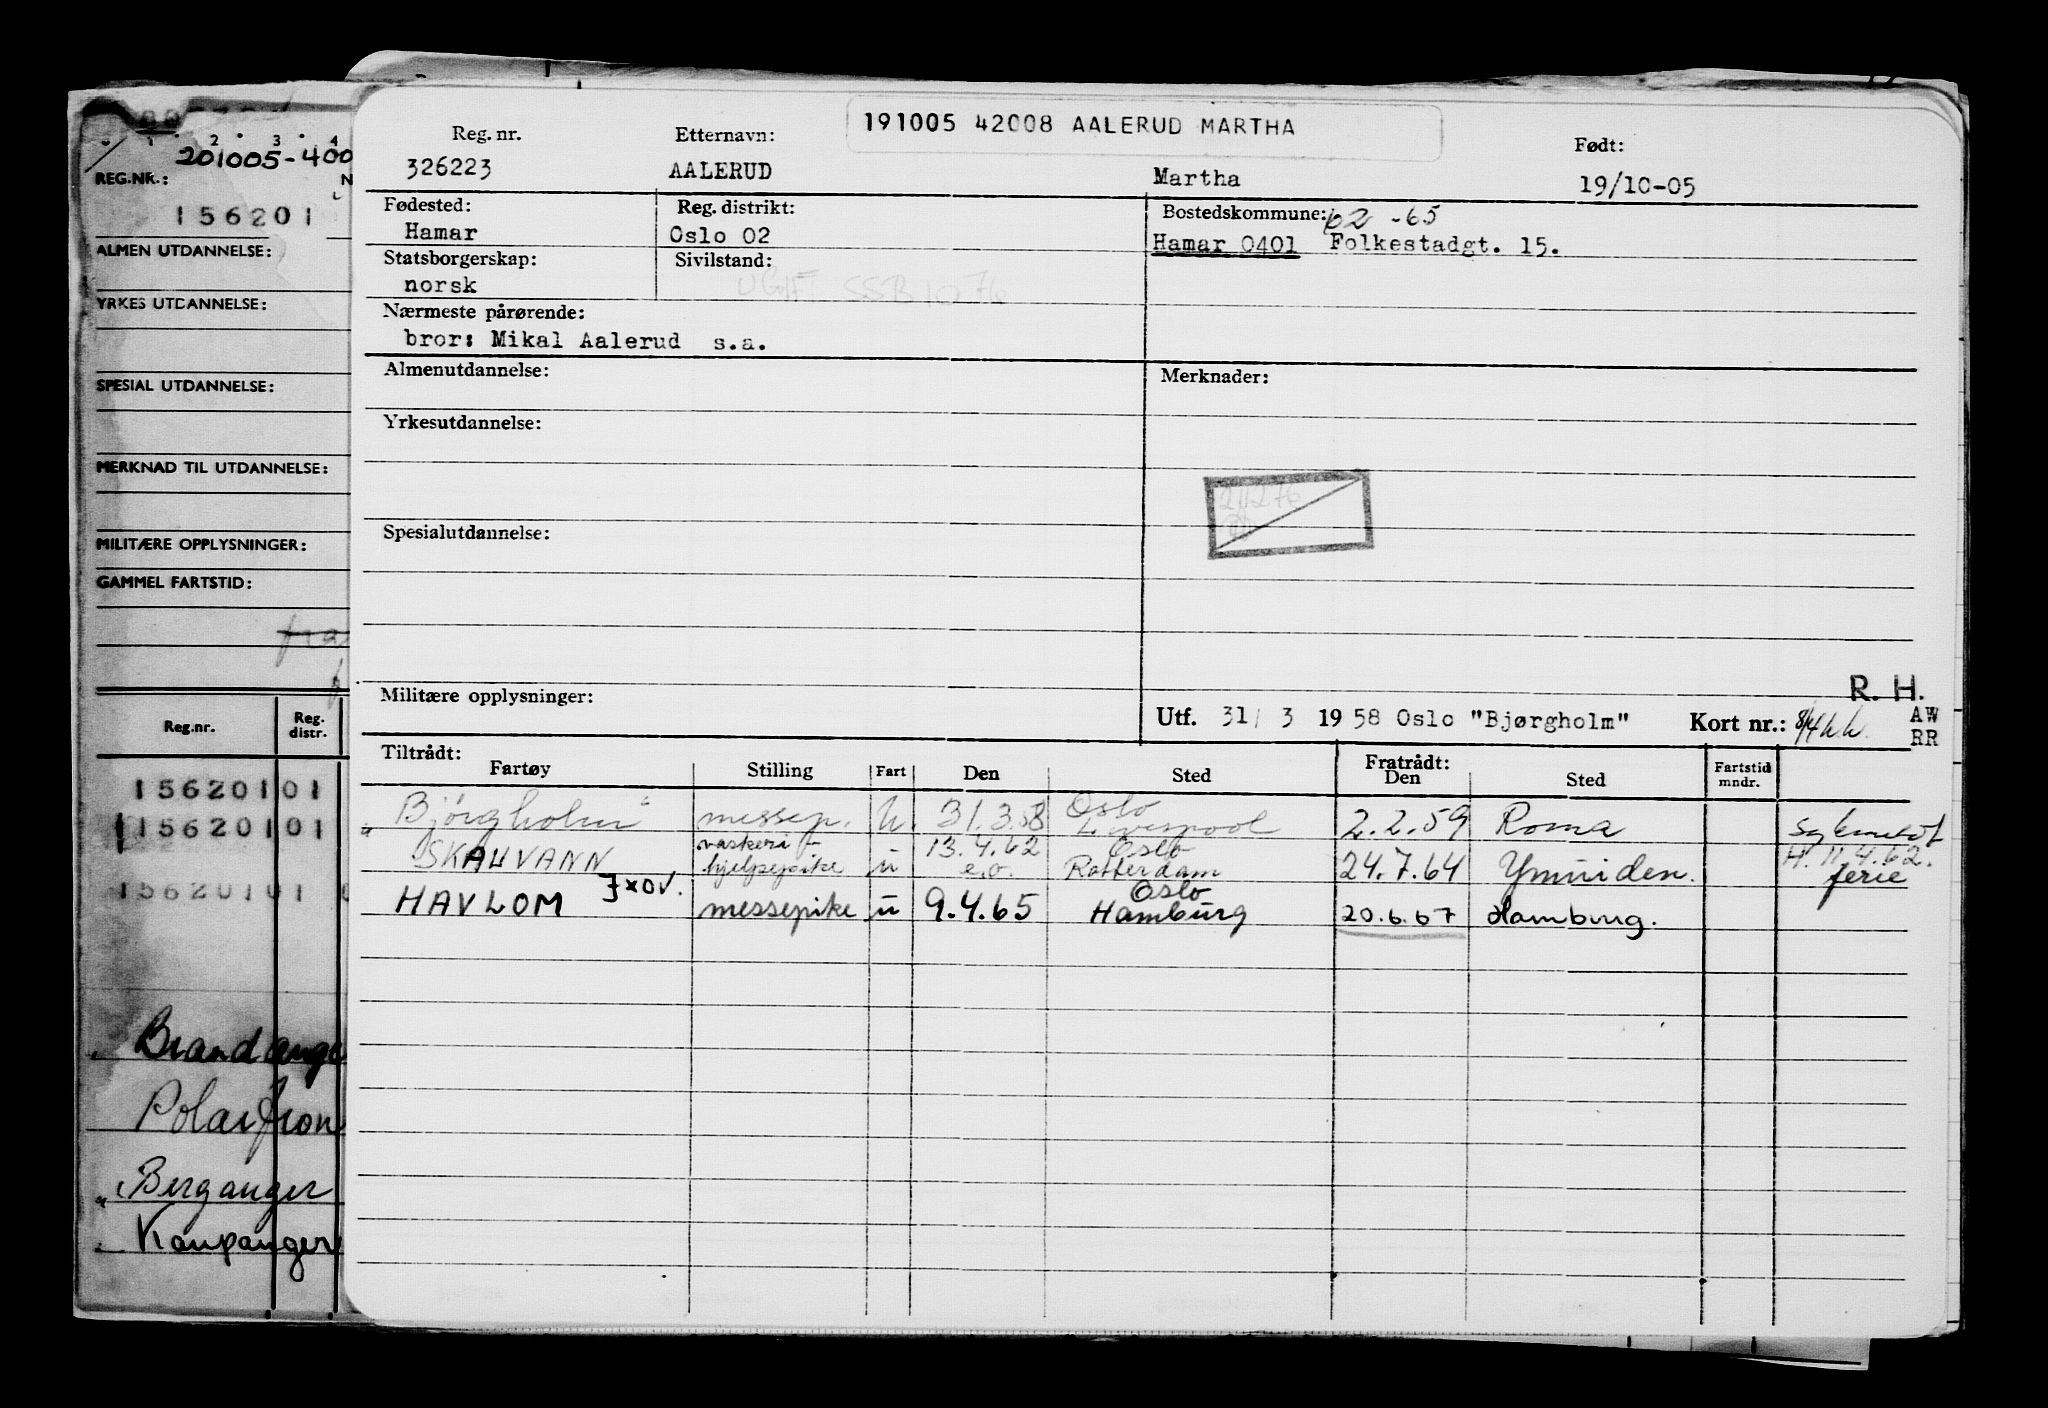 201005-400
1 2 3 4
REG.NR.:
156201
ALMEN UTDANNELSE:
YRKES UTDANNELSE:
SPESIAL UTDANNELSE:
MERKNAD TIL UTDANNELSE:
MILITÆRE OPPLYSNINGER:
GAMMEL FARTSTID:
Reg.nr. Reg. distr.
156201 01
156201 01
156201 01
Brandange
Polarfron
Berganger
Kaupanger
191005 42008 AALERUD MARTHA
Reg. nr. Etternavn: Født:
326223 AALERUD Martha 19/10-05
Fødested: Reg. distrikt: Bostedskommune: 62 -65
Hamar Oslo 02 Hamar 0401 Folkestadgt. 15.
Statsborgerskap: Sivilstand:
norsk UGIFT SSB 10 76
Nærmeste pårørende:
bror: Mikal Aalerud s.a.
Almenutdannelse: Merknader:
Yrkesutdannelse:
Spesialutdannelse:
R. H.
Militære opplysninger:
Utf. 31/ 3 1958 Oslo "Bjørgholm" Kort nr.: AW
RR
Tiltrådt: Fratrådt:
Fartøy Stilling Fart Den Sted Den Sted Fartstid mndr.
"Bjørgholm" messep. u. 31.3.58 Oslo Liverpool 2.2.59 Roma
SKAUVANN vaskeri- hjelpepike u 13.4.62 e.o. Oslo Rotterdam 24.7.64 Ymuiden. H. 11.4.62. ferie
HAVLOM JXOV. messepike u 9.4.65 Oslo Hamburg 20.6.67 Hamburg.